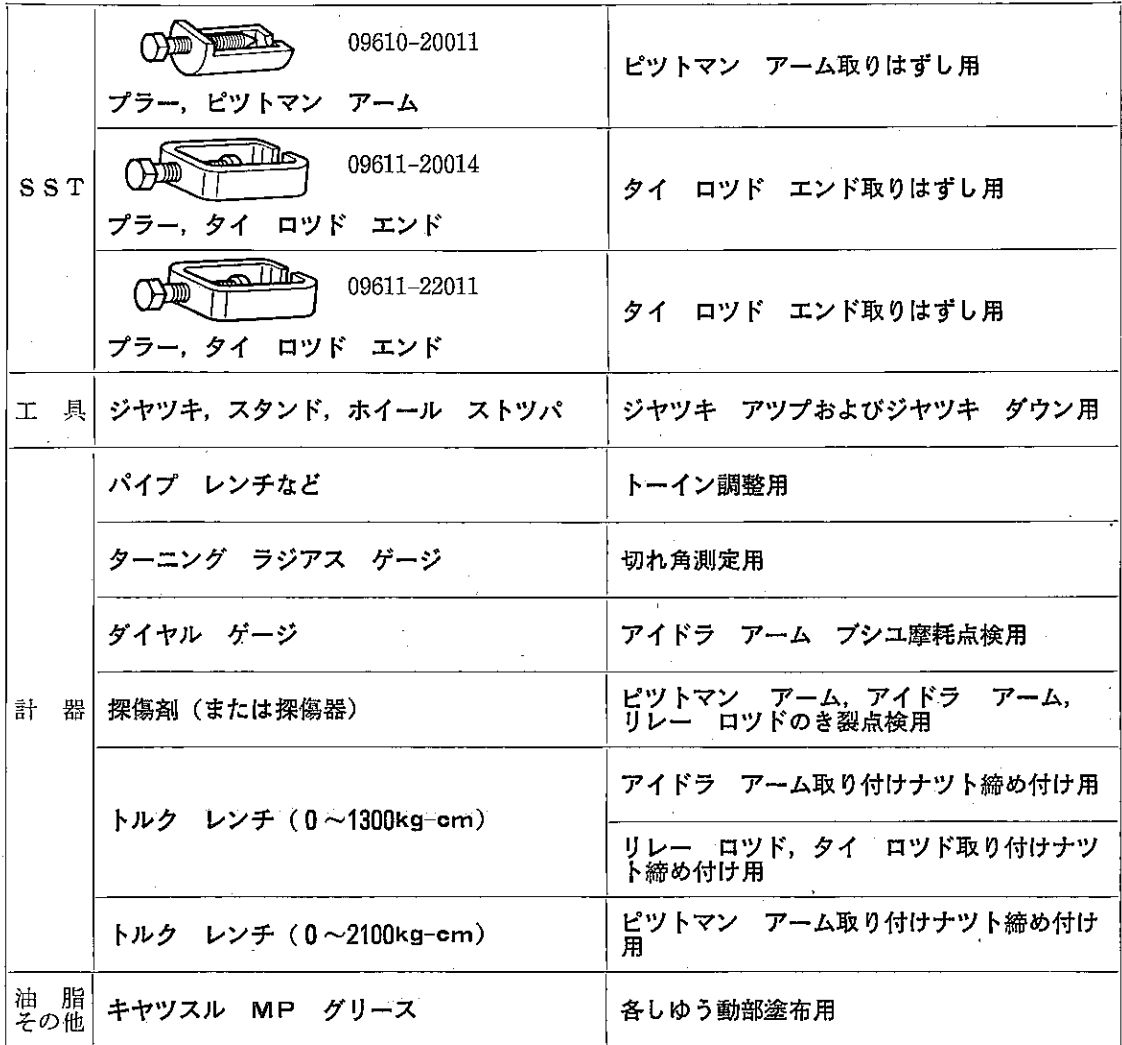 SST
09610-20011
プラー, ピツトマン アーム
ピツトマン アーム取りはずし用
09611-20014
プラー, タイ ロツド エンド
タイ ロツド エンド取りはずし用
09611-22011
プラー, タイ ロツド エンド
タイ ロツド エンド取りはずし用
工 具
ジヤツキ, スタンド, ホイール ストツパ
ジヤツキ アツプおよびジヤツキ ダウン用
計 器
パイプ レンチなど
トーイン調整用
ターニング ラジアス ゲージ
切れ角測定用
ダイヤル ゲージ
アイドラ アーム ブシユ摩耗点検用
探傷剤 (または探傷器)
ピツトマン アーム, アイドラ アーム,
リレー ロツドのき裂点検用
トルク レンチ (0~1300kg-cm)
アイドラ アーム取り付けナツト締め付け用
リレー ロツド, タイ ロツド取り付けナツ
ト締め付け用
トルク レンチ (0~2100kg-cm)
ピツトマン アーム取り付けナツト締め付け
用
油 脂
その他
キヤツスル MP グリース
各しゆう動部塗布用